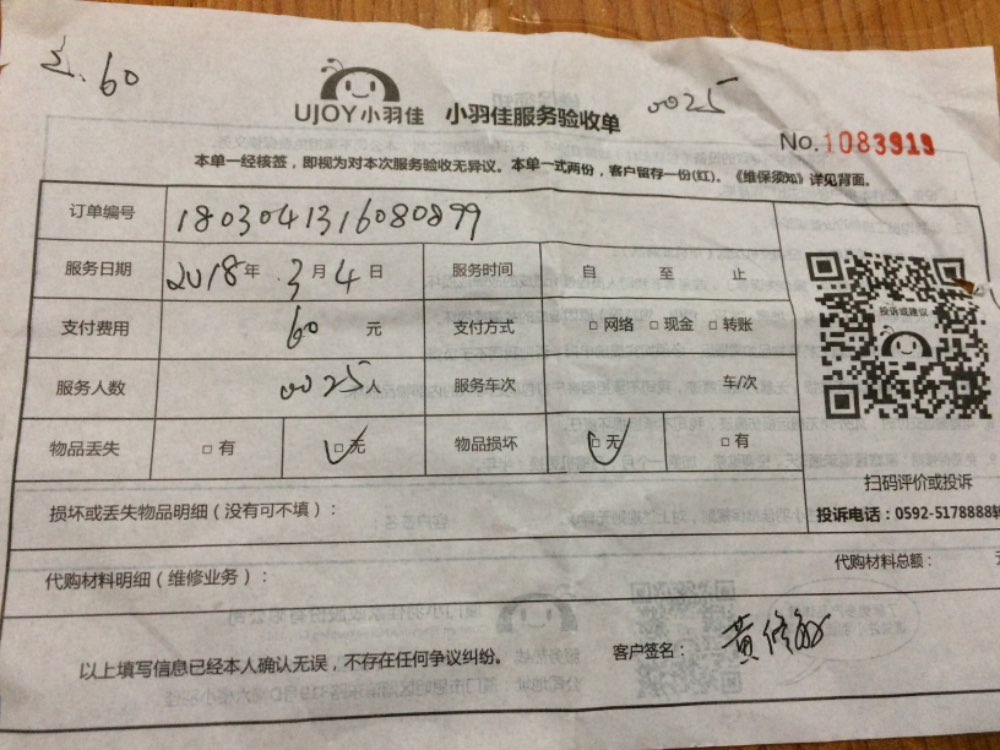 60
UJOY小羽佳 小羽佳服务验收单 0025
No.1083919
本单一经核签，即视为对本次服务验收无异议。本单一式两份，客户留存一份(红)。《维保须知》详见背面。
订单编号 1803041316080899
服务日期 2018年 3月4日 服务时间 自 至 止
支付费用 60 元 支付方式 □网络 □现金 □转账
服务人数 0025人 服务车次 车/次
物品丢失 □有 □无 物品损坏 □无 □有
投诉或建议
扫码评价或投诉
损坏或丢失物品明细（没有可不填）：
投诉电话：0592-5178888转
代购材料明细（维修业务）： 代购材料总额：
以上填写信息已经本人确认无误，不存在任何争议纠纷。 客户签名：黄修